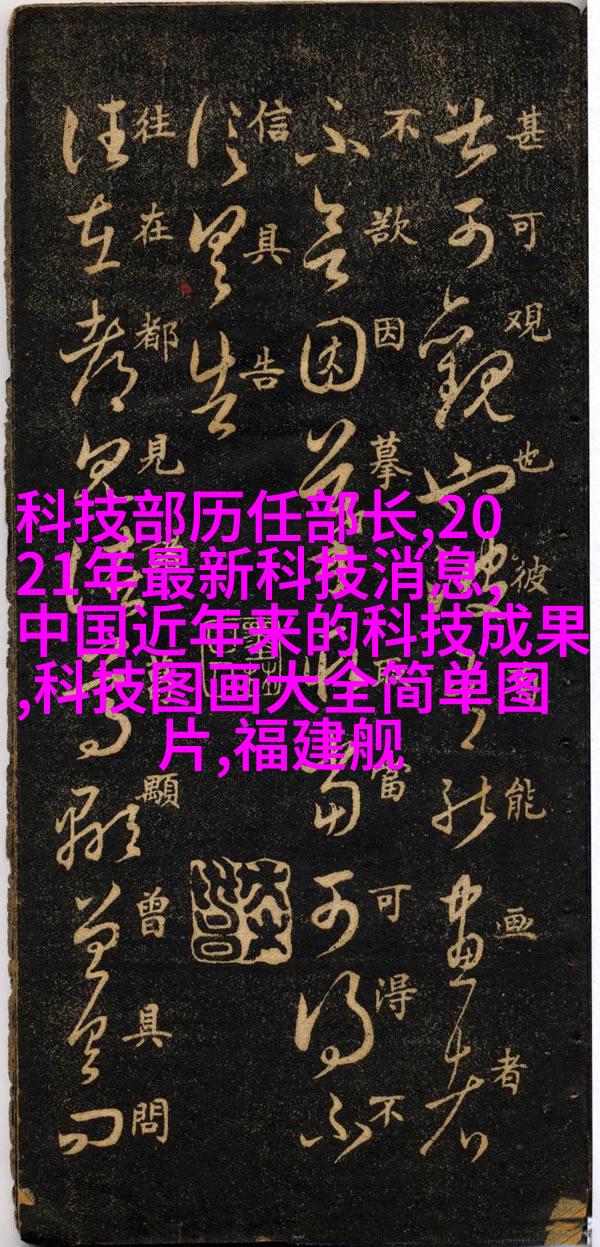 甚可观也彼能画者
不欲因摹當可得不
信具告
往在都見顯曾具問
科技部历任部长,20
21年最新科技消息,
中国近年来的科技成果
,科技图画大全简单图
片,福建舰